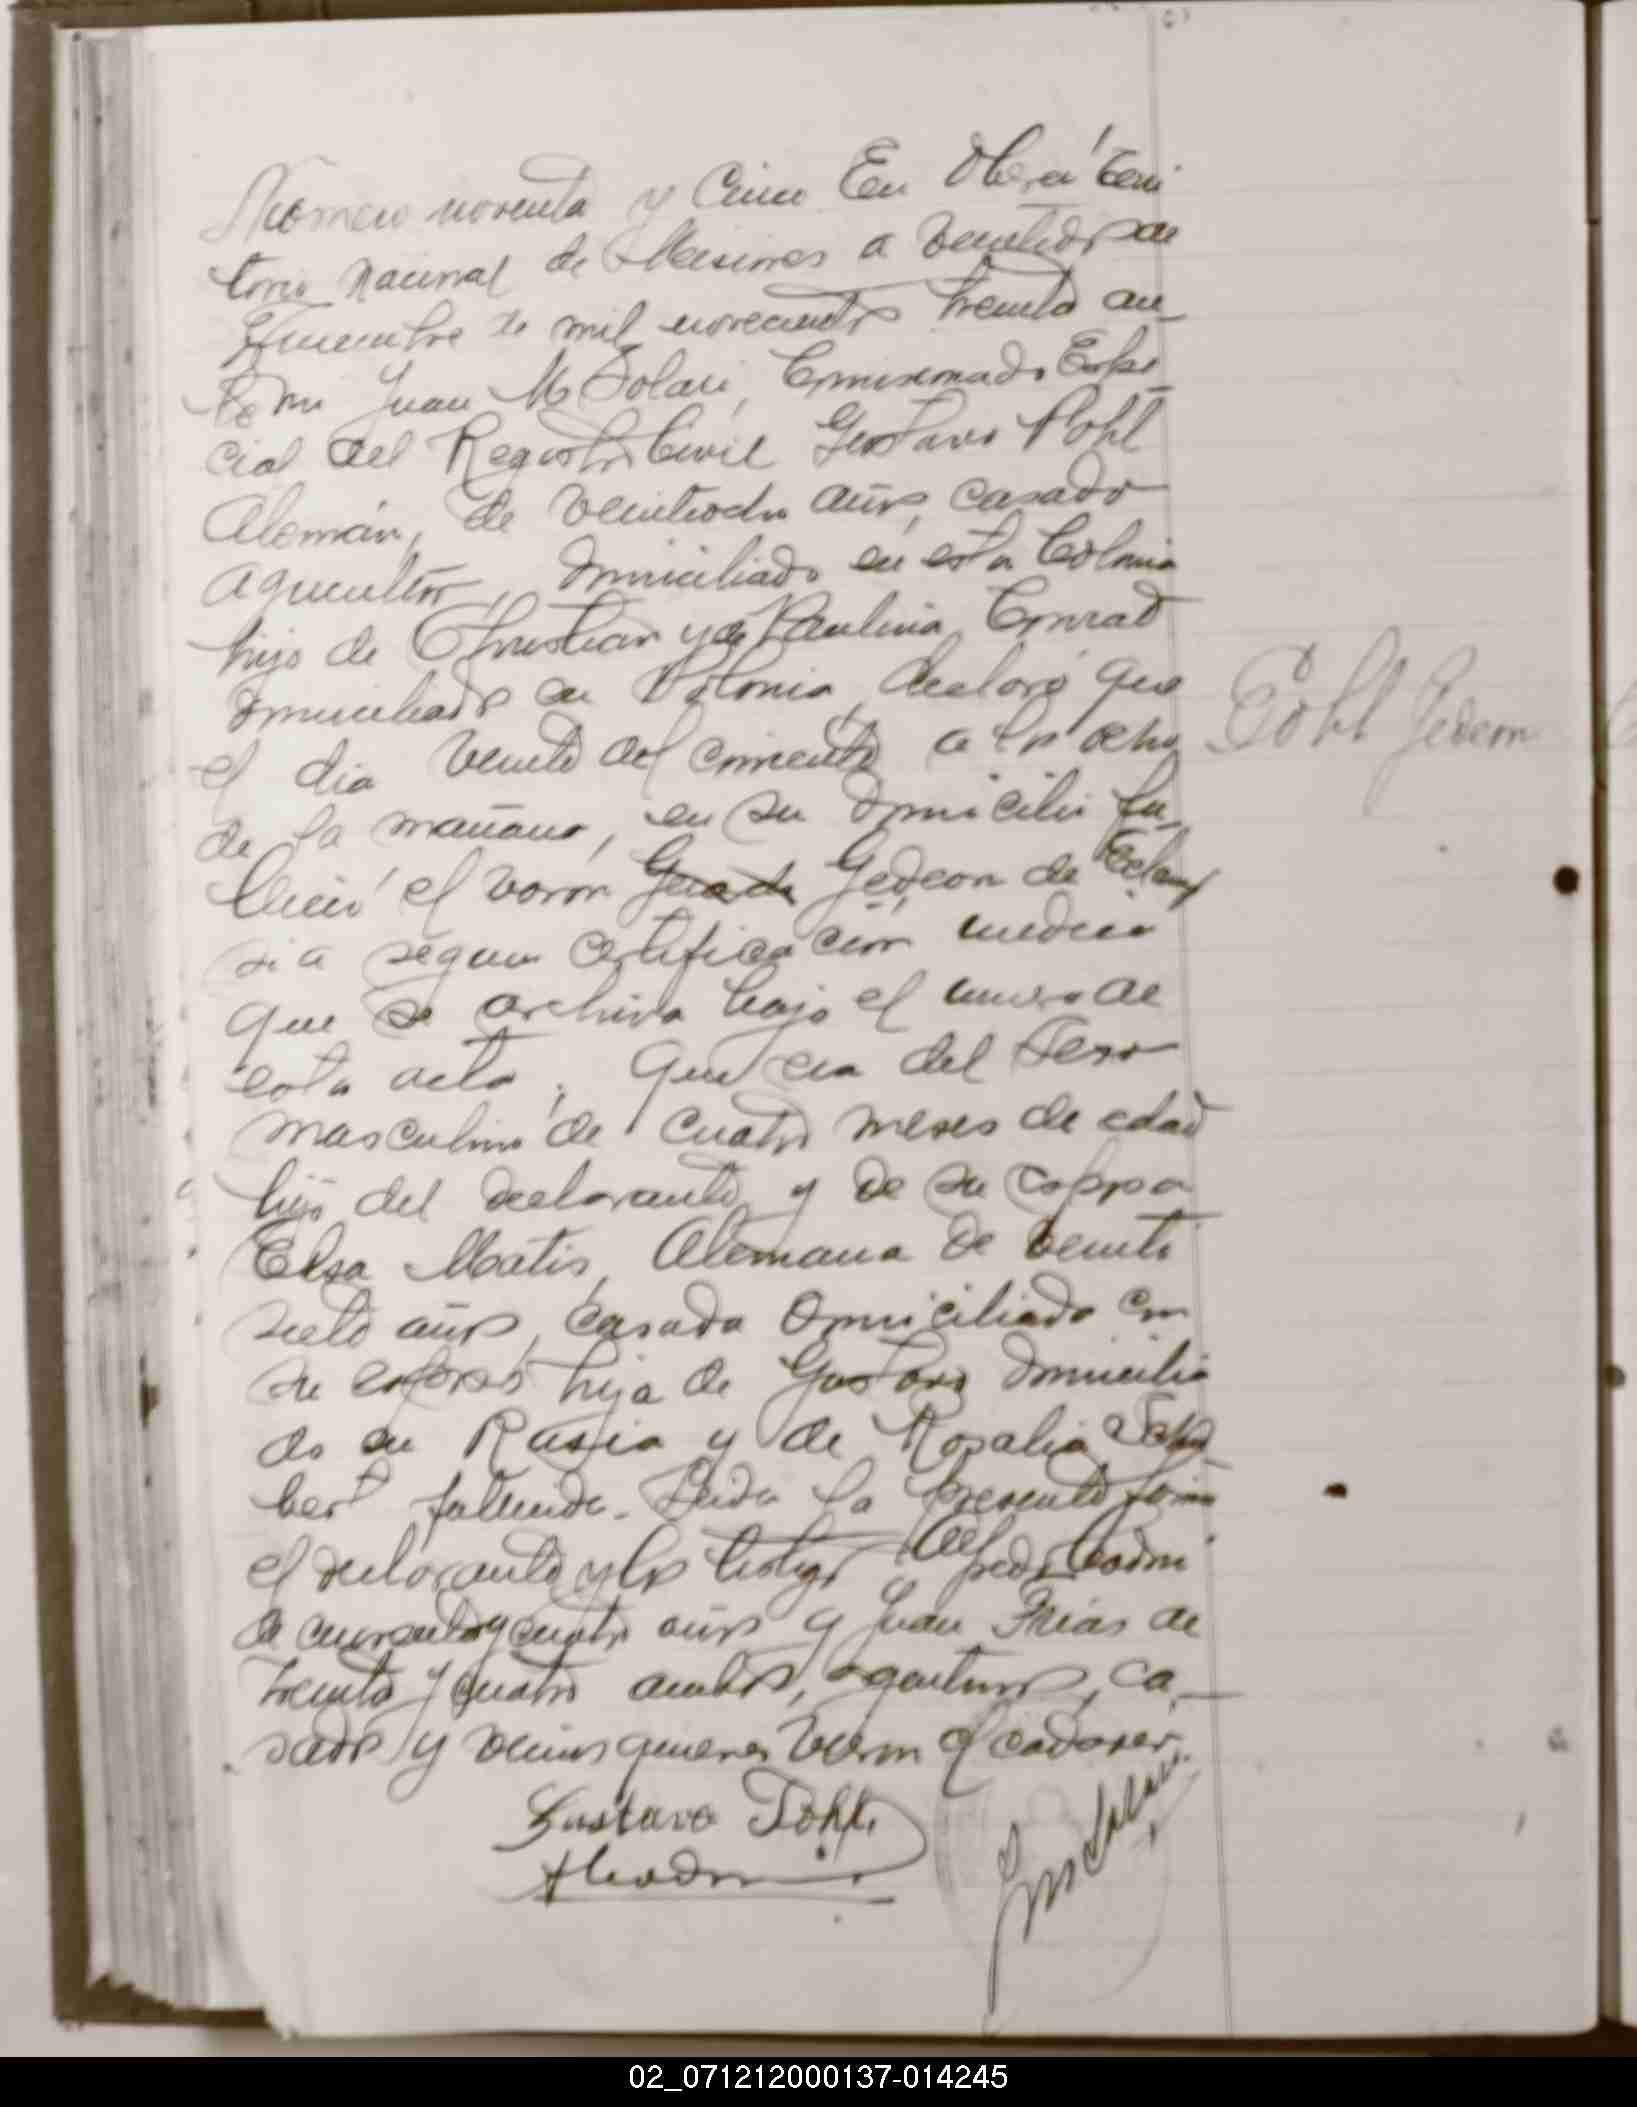 Número noventa y Cinco En Oberá Terri
torio Nacional de Misiones a Veintidos de
de mil novecientos treinta an_
te mi Juan M Solari, Comisionado Espe_
cial del Registro Civil Gustavo Pohl
Alemán, de veintiocho años, casado
agricultor, domiciliado en esta Colonia
hijo de Christian y de Paulina Conrad
domiciliados en Polonia, declaró que
el dia veinte del corriente a las ocho
de la mañana, en su domicilio fa_
lleció el varon Gedeon de Eclamp
sia segun certificación medica
que se archiva bajo el numero de
esta acta; Que era del Sexo
masculino de cuatro meses de edad
hijo del declarante y de su esposa
Elsa Matis, Alemana de veinti
siete años, casada domiciliada con
su esposo hija de Gustavo domicilia
do en Rusia y de Rosalia Schu
bert fallecida. Leida la presente firma
el declarante y los testigos Alfredo
de cuarenta y cuatro años y Juan Frias de
treinta y cuatro ambos, argentinos, ca_
sados y vecinos quienes vieron el cadaver.
Pohl Gedeon
Gustavo Pohl.
02_071212000137-014245